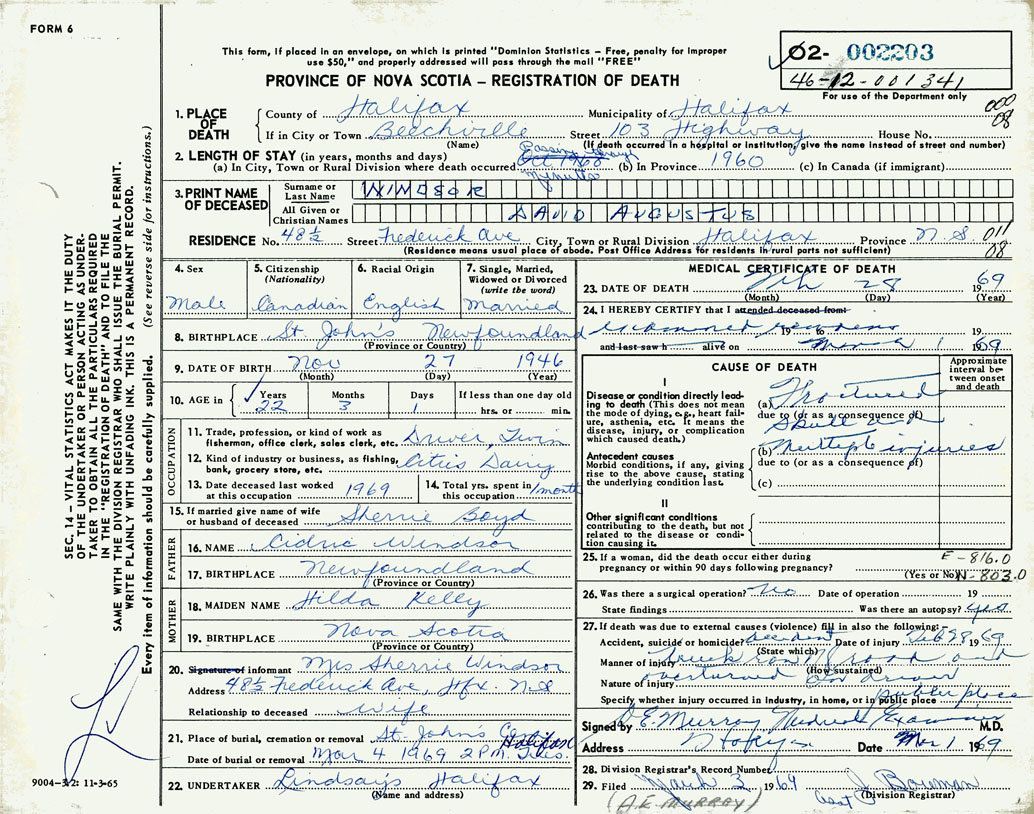 FORM 6
This form, if placed in an envelope, on which is printed "Dominion Statistics – Free, penalty for improper
use $50," and properly addressed will pass through the mail "FREE"
PROVINCE OF NOVA SCOTIA – REGISTRATION OF DEATH
02- 002203
46-12-001341
For use of the Department only
1. PLACE OF DEATH
County of Halifax Municipality of Halifax 000
08
If in City or Town Beechville Street 103 Highway House No.
(Name) (If death occurred in a hospital or institution, give the name instead of street and number)
2. LENGTH OF STAY (in years, months and days) Passing through
(a) In City, Town or Rural Division where death occurred Oct 1968 Minutes (b) In Province 1960 (c) In Canada (if immigrant)
3. PRINT NAME OF DECEASED
Surname or Last Name WINDSOR
All Given or Christian Names DAVID AUGUSTUS
RESIDENCE No. 48½ Street Frederick Ave City, Town or Rural Division Halifax Province N.S. 011
08
(Residence means usual place of abode. Post Office Address for residents in rural parts not sufficient)
4. Sex
Male
5. Citizenship
(Nationality)
Canadian
6. Racial Origin
English
7. Single, Married,
Widowed or Divorced
(write the word)
Married
8. BIRTHPLACE St. John's Newfoundland
(Province or Country)
9. DATE OF BIRTH Nov 27 1946
(Month) (Day) (Year)
10. AGE in
Years Months Days If less than one day old
22 3 1 hrs. or min.
OCCUPATION
11. Trade, profession, or kind of work as
fisherman, office clerk, sales clerk, etc. Driver, Twin
12. Kind of industry or business, as fishing,
bank, grocery store, etc. Cities Dairy
13. Date deceased last worked
at this occupation 1969
14. Total yrs. spent in
this occupation 1 month
15. If married give name of wife
or husband of deceased Sherrie Boyd
FATHER
16. NAME Cidric Windsor
17. BIRTHPLACE Newfoundland
(Province or Country)
MOTHER
18. MAIDEN NAME Hilda Kelly
19. BIRTHPLACE Nova Scotia
(Province or Country)
20. Signature of informant Mrs Sherrie Windsor
Address 48½ Frederick Ave, Hfx. N.S
Relationship to deceased Wife
21. Place of burial, cremation or removal St. John's Halifax
Date of burial or removal Mar 4 1969 2 P.M. Tues.
22. UNDERTAKER Lindsay's Halifax
(Name and address)
MEDICAL CERTIFICATE OF DEATH
23. DATE OF DEATH Feb 28 1969
(Month) (Day) (Year)
24. I HEREBY CERTIFY that I attended deceased from
examined remains 19 to 19
and last saw h alive on March 1 1969
CAUSE OF DEATH
Approximate
interval be-
tween onset
and death
I
Disease or condition directly lead-
ing to death (This does not mean
the mode of dying, e.g., heart fail-
ure, asthenia, etc. It means the
disease, injury, or complication
which caused death.)
(a) Fractured
due to (or as a consequence of)
Skull and
Antecedent causes
Morbid conditions, if any, giving
rise to the above cause, stating
the underlying condition last.
(b) Multiple injuries
due to (or as a consequence of)
(c)
II
Other significant conditions
contributing to the death, but not
related to the disease or condi-
tion causing it.
25. If a woman, did the death occur either during
pregnancy or within 90 days following pregnancy?
(Yes or No)
E-816.0
N-803.0
26. Was there a surgical operation? No Date of operation 19
State findings Was there an autopsy? Yes
27. If death was due to external causes (violence) fill in also the following:-
Accident, suicide or homicide? Accident Date of injury Feb 28 1969
(State which)
Manner of injury truck ran off road and
(How sustained)
Nature of injury overturned on driver
Specify whether injury occurred in industry, in home, or in public place public place
Signed by A.E. Murray Medical Examiner M.D.
Address Date Mar 1 1969
28. Division Registrar's Record Number
29. Filed March 3 1969 J. Bowman
(Division Registrar)
(A.E. MURRAY)
SEC. 14 – VITAL STATISTICS ACT MAKES IT THE DUTY
OF THE UNDERTAKER OR PERSON ACTING AS UNDER-
TAKER TO OBTAIN ALL THE PARTICULARS REQUIRED
IN THE "REGISTRATION OF DEATH" AND TO FILE THE
SAME WITH THE DIVISION REGISTRAR WHO SHALL ISSUE THE BURIAL PERMIT.
WRITE PLAINLY WITH UNFADING INK. THIS IS A PERMANENT RECORD.
Every item of information should be carefully supplied. (See reverse side for instructions.)
9004-3/2: 11-3-65